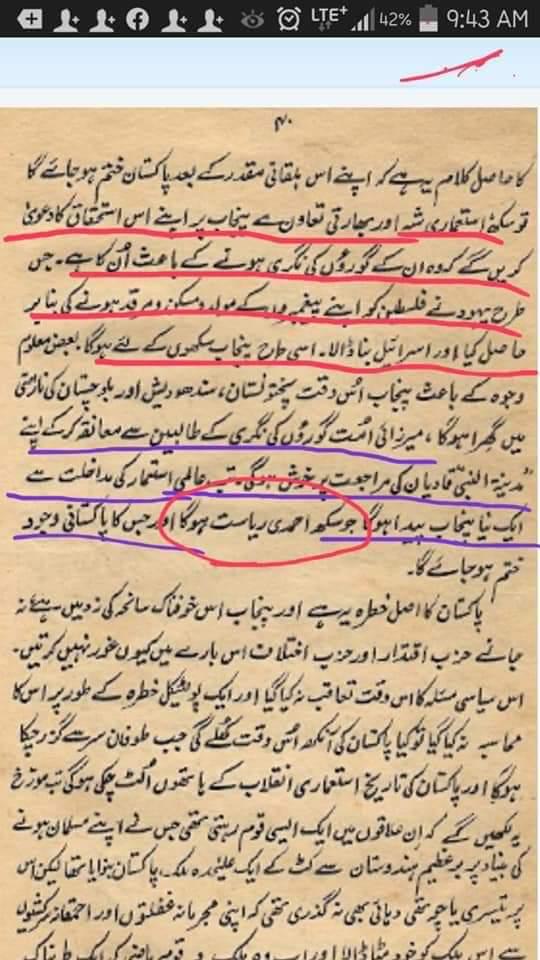 LTE+ 42% 9:43 AM
۴۰
کا حاصل کلام یہ ہے کہ اپنے اس بلقانی مقدر کے بعد پاکستان ختم ہو جائے گا
تو سکھ استعماری شہ اور بھارتی تعاون سے پنجاب پر اپنے اس استحقاق کا دعویٰ
کریں گے کہ وہ ان کے گوروؤں کی نگری ہونے کے باعث اُن کا ہے۔ جس
طرح یہود نے فلسطین کو اپنے پیغمبروں کے مولد و مسکن و مرقد ہونے کی بنا پر
حاصل کیا اور اسرائیل بنا ڈالا۔ اسی طرح پنجاب سکھوں کے لئے ہوگا بعض معلوم
وجوہ کے باعث پنجاب اُس وقت پختونستان، سندھو دیش اور بلوچستان کی ناراضی
میں گھرا ہوگا، میرزائی اُمت گوروؤں کی نگری کے طالبین سے معانقہ کرکے اپنے
"مدینۃ النبی" قادیان کی مراجعت پر خوش ہوگی تب عالمی استعمار کی مداخلت سے
ایک نیا پنجاب پیدا ہوگا جو سکھ احمدی ریاست ہوگا اور جس کا پاکستانی وجود
ختم ہو جائے گا۔
پاکستان کا اصل خطرہ یہ ہے اور پنجاب اس خوفناک سانحہ کی زد میں ہے نہ
جانے حزب اقتدار اور حزب اختلاف اس بارے میں کیوں غور نہیں کرتیں۔
اس سیاسی مسئلہ کا اس وقت تعاقب نہ کیا گیا اور ایک پولٹیکل خطرہ کے طور پر اس کا
محاسبہ نہ کیا گیا تو کیا پاکستان کی آنکھ اُس وقت کھلے گی جب طوفان سر سے گزر چکا
ہوگا اور پاکستان کی تاریخ استعماری انقلاب کے ہاتھوں اُلٹ چکی ہوگی تب مورخ
یہ لکھیں گے کہ ان علاقوں میں ایک ایسی قوم رہتی تھی جس نے اپنے مسلمان ہونے
کی بنیاد پر برعظیم ہندوستان سے کٹ کے ایک علیٰحدہ ملک، پاکستان بنوایا تھا لیکن اُس
پر تیسری یا چوتھی دہائی بھی نہ گذری تھی کہ اپنی مجرمانہ غفلتوں اور احمقانہ سرکشیوں
سے اس ملک کو خود مٹا ڈالا اور اب وہ ملک